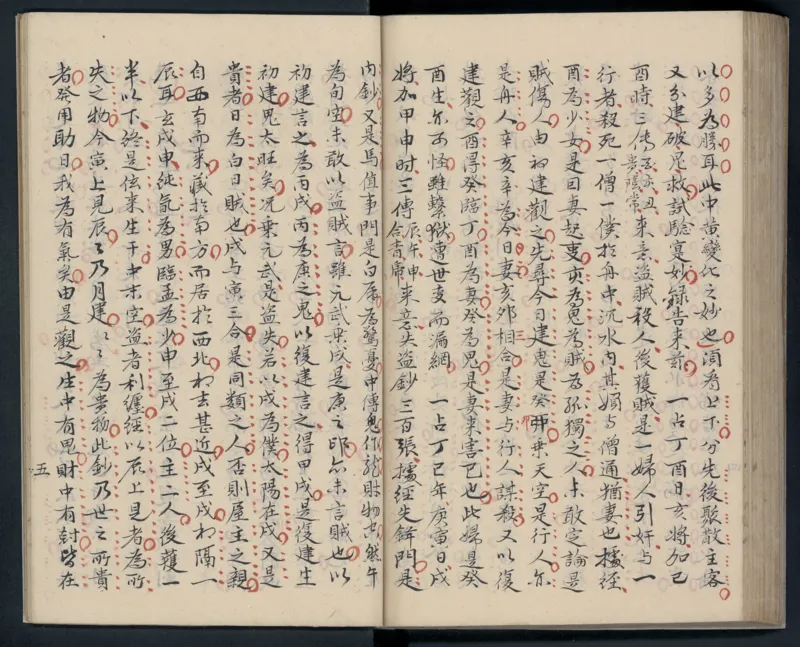 以多為勝耳此中黄變化之妙也須看上下分先後聚散主客
又分建破足救試騐寔妙錄告来茲　一占丁酉日亥將加巳
酉時三傳亥丑貴陰常来意盗賊殺人後獲賊是一婦人引奸与一
行者殺死一僧一僕扵舟中沉水内其媚与僧通猶妻也據経
酉為少女是曰妻起叓亥為鬼為賊為孤獨之人未敢定論是
賊傷人由初建觀之先尋今日建鬼是癸卯乗天空是行人尓
是舟人辛亥辛為今日妻亥夘相合是妻与行人謀殺又以復
建觀之酉得癸臨丁酉為妻癸為鬼是妻来害己也此婦是癸
酉生尓可怪雖蟄獄遭世变而漏網　一占丁巳年庚寅日戌
將加甲申时三傳辰午申合青席来意失盗鈔三百張據經先鋒門是
内鈔又是馬值事門是白虎為驚憂中傳鬼作龍財物也然午
為旬空未敢以盗賊言雖元武乗戌是庚之印尓未言賊也以
初建言之為丙戌丙為庚之鬼以復建言之得甲戌是復建生
初建鬼太旺矣况乗元武是盗失若以戌為僕太陽在戌又是
貴者日為白日賊也戌与寅三合是同類之人否則屋主之親
自西南而来藏扵南方而居扵西北相去甚近戌至戌相隔一
辰耳玄戌申純氣為男臨孟為少申至戌二位主二人後獲一
半以下終是傳来生干中末空盗者利纏経以辰上見者為所
失之物今寅上見辰辰乃月建月建為貴物此鈔乃世之所貴
者癸用助日我為有氣矣由是觀之庄中有鬼財中有封皆在
五